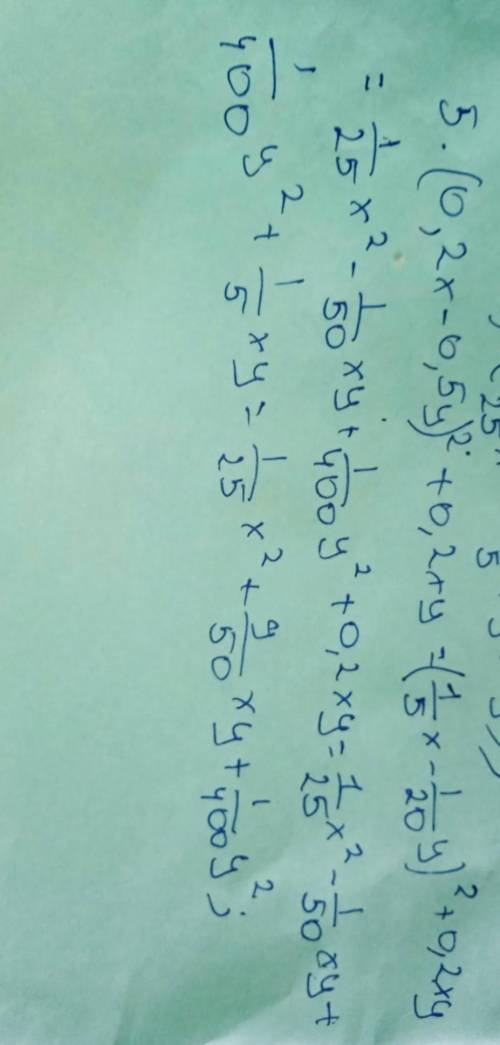 5. (0,2x-0,5y)² + 0,2xy = (1/5 x - 1/20 y)² + 0,2xy
= 1/25 x² - 1/50 xy + 1/400 y² + 0,2xy = 1/25 x² - 1/50 xy +
1/400 y² + 1/5 xy = 1/25 x² + 9/50 xy + 1/400 y²;